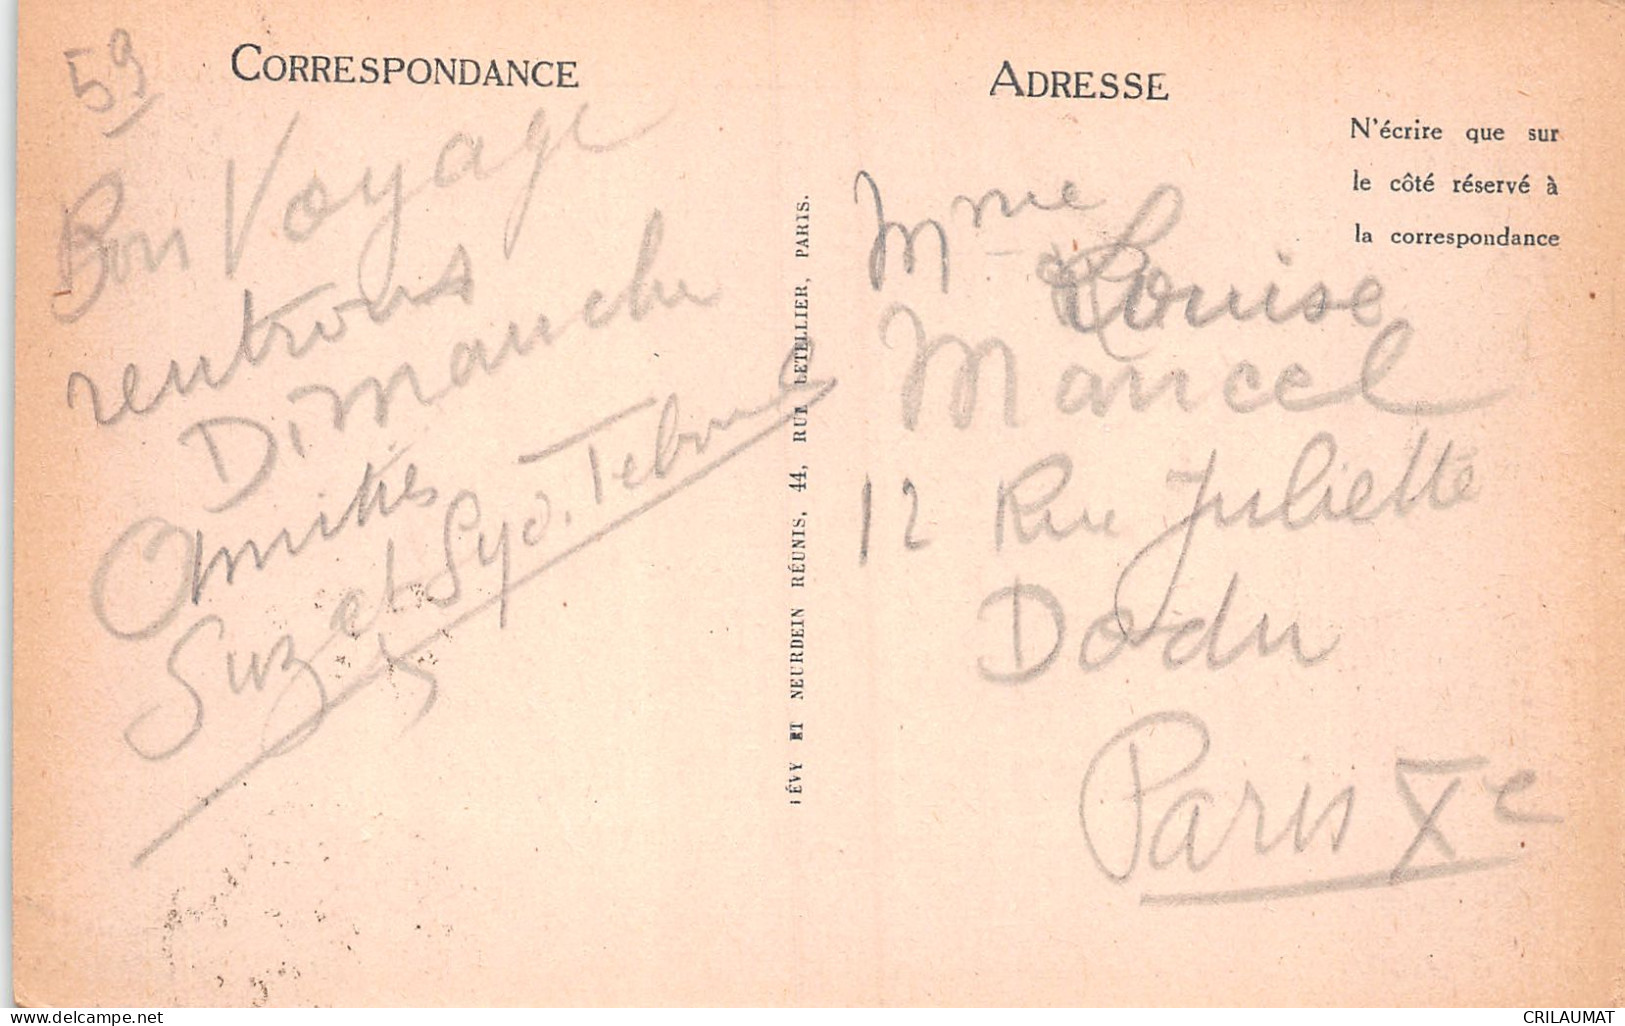 59
CORRESPONDANCE
Bon Voyage
rentrons
Dimanche
Amitiés
Suz et Syd. Teboul
LÉVY ET NEURDEIN RÉUNIS, 44, RUE LETELLIER, PARIS.
ADRESSE
N'écrire que sur
le côté réservé à
la correspondance
Mme Louise
Marcel
12 Rue Juliette
Dodu
Paris Xe
www.delcampe.net
CRILAUMAT